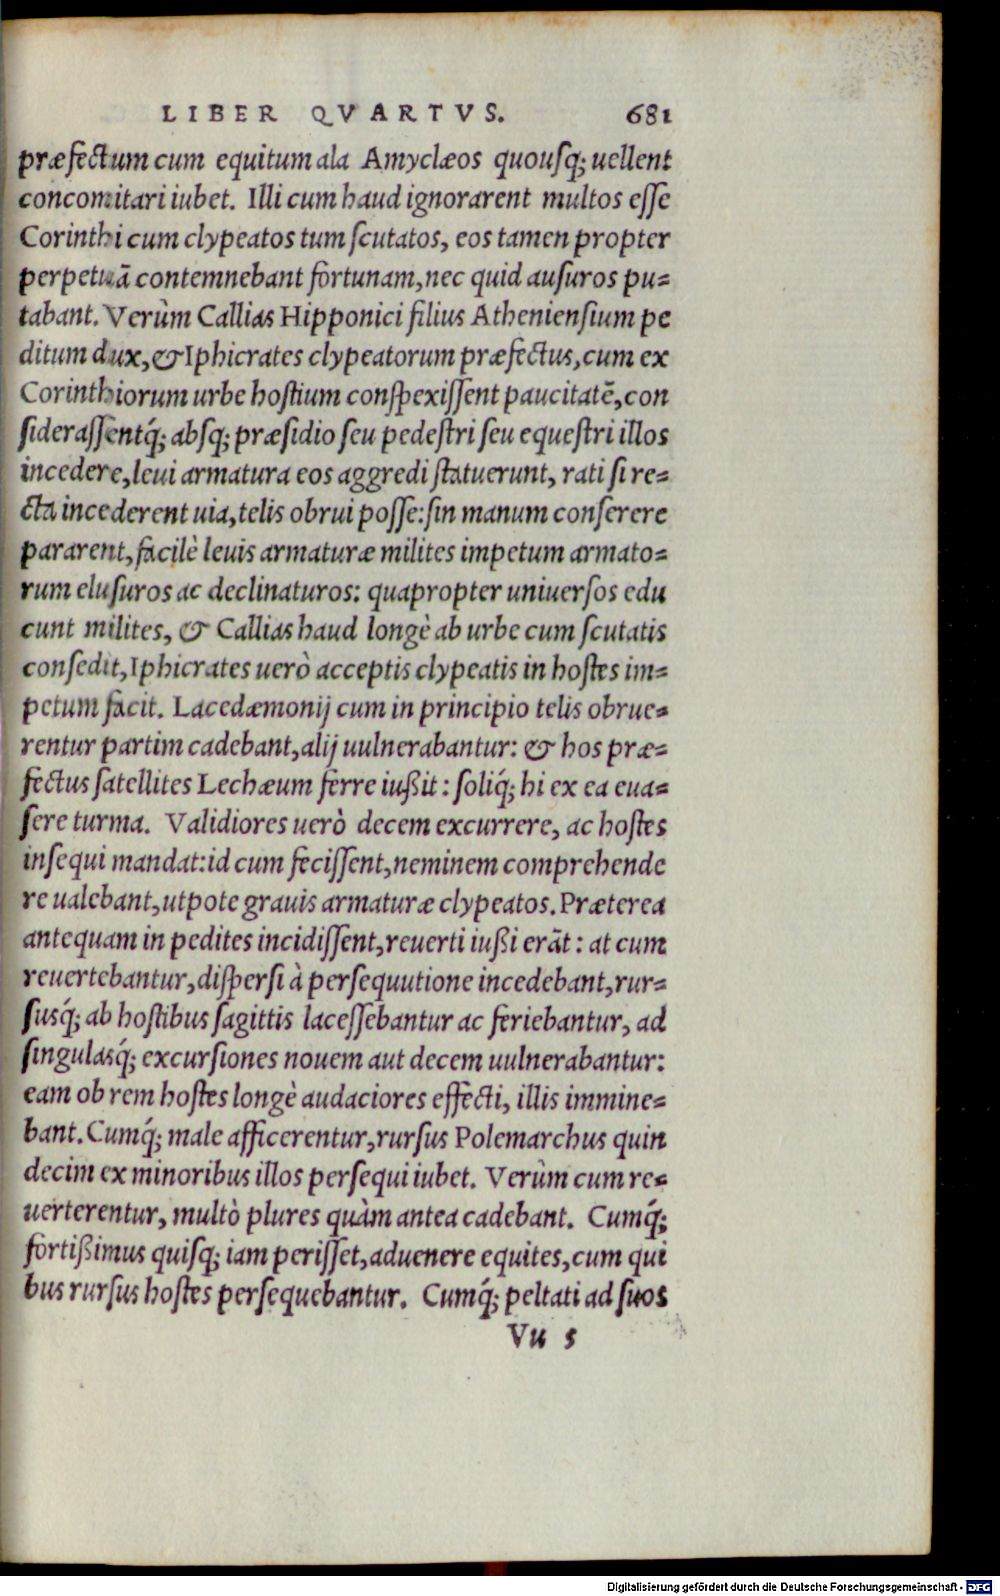 LIBER QVARTVS. 681
præfectum cum equitum ala Amyclæos quousq; uellent
concomitari iubet. Illi cum haud ignorarent multos esse
Corinthi cum clypeatos tum scutatos, eos tamen propter
perpetuā contemnebant fortunam, nec quid ausuros pu=
tabant. Verùm Callias Hipponici filius Atheniensium pe
ditum dux, & Iphicrates clypeatorum præfectus, cum ex
Corinthiorum urbe hostium conspexissent paucitatē, con
siderassentq́; absq; præsidio seu pedestri seu equestri illos
incedere, leui armatura eos aggredi statuerunt, rati si re=
cta incederent uia, telis obrui posse: sin manum conserere
pararent, facilè leuis armaturæ milites impetum armato=
rum elusuros ac declinaturos: quapropter uniuersos edu
cunt milites, & Callias haud longè ab urbe cum scutatis
consedit, Iphicrates uerò acceptis clypeatis in hostes im=
petum facit. Lacedæmonij cum in principio telis obrue=
rentur partim cadebant, alij uulnerabantur: & hos præ=
fectus satellites Lechæum ferre iußit: soliq́; hi ex ea eua=
sere turma. Validiores uerò decem excurrere, ac hostes
insequi mandat: id cum fecissent, neminem comprehende
re ualebant, utpote grauis armaturæ clypeatos. Præterea
antequam in pedites incidissent, reuerti iußi erāt: at cum
reuertebantur, dispersi à persequutione incedebant, rur=
susq́; ab hostibus sagittis lacessebantur ac feriebantur, ad
singulasq́; excursiones nouem aut decem uulnerabantur:
eam ob rem hostes longè audaciores effecti, illis immine=
bant. Cumq́; male afficerentur, rursus Polemarchus quin
decim ex minoribus illos persequi iubet. Verùm cum re=
uerterentur, multò plures quàm antea cadebant. Cumq́;
fortißimus quisq; iam perisset, aduenere equites, cum qui
bus rursus hostes persequebantur. Cumq́; peltati ad suos
Vu 5
Digitalisierung gefördert durch die Deutsche Forschungsgemeinschaft - DFG